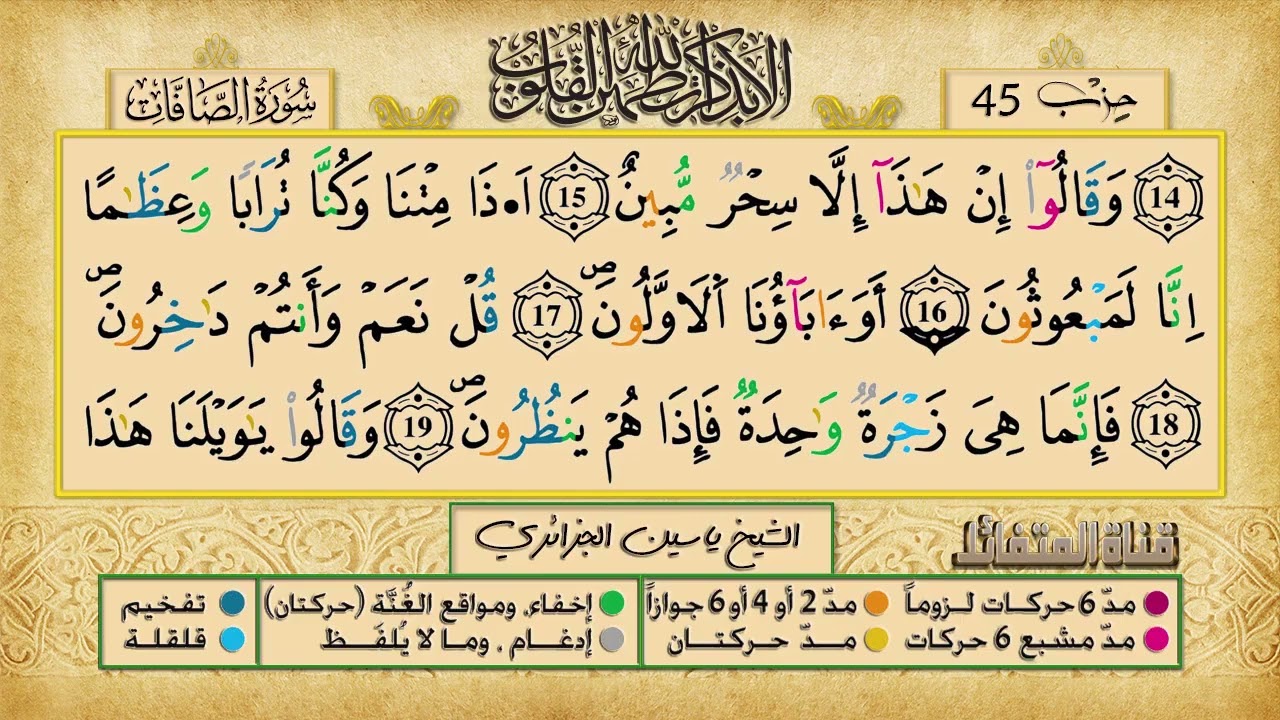 حِزْب 45
أَلَا بِذِكْرِ اللَّهِ تَطْمَئِنُّ الْقُلُوبُ
سُورَةُ الصَّافَّاتِ
14 وَقَالُوٓاْ إِنْ هَٰذَآ إِلَّا سِحْرٌ مُّبِينٌ 15 اَ•ذَا مِتْنَا وَكُنَّا تُرَابًا وَعِظَٰمًا
اِنَّا لَمَبْعُوثُونَ 16 أَوَءَابَآؤُنَا اَ۬لَاوَّلُونَۖ 17 قُلْ نَعَمْ وَأَنتُمْ دَٰخِرُونَۖ
18 فَإِنَّمَا هِىَ زَجْرَةٌ وَٰحِدَةٌ فَإِذَا هُمْ يَنظُرُونَۖ 19 وَقَالُواْ يَٰوَيْلَنَا هَٰذَا
قناة المتفائل
الشيخ ياسين الجزائري
مدّ 6 حركات لـزوماً
مدّ 2 أو 4 أو 6 جوازاً
إخفاء، ومواقع الغُنَّة (حركتان)
تفخيم
مدّ مشبع 6 حركات
مـدّ حـركتـان
إدغـام ، ومـا لا يُلفَـظ
قلقلة